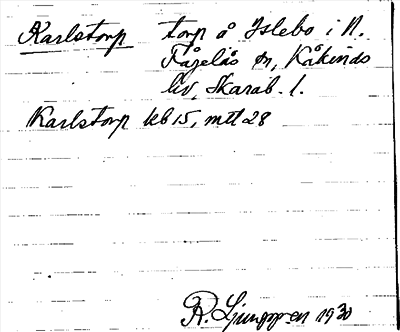 Karlstorp torp å Islebo i N.
Fågelås sn, Kåkinds
hd, Skarab. l.
Karlstorp kb 15, mtl 28
R. Ljunggren 1930